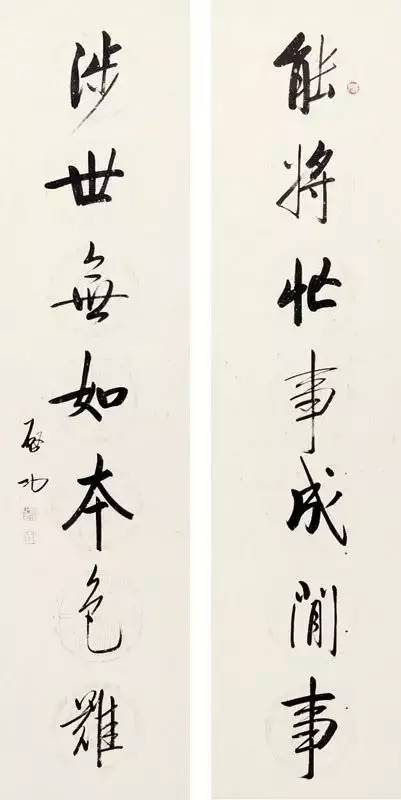 能將忙事成閒事
涉世無如本色難
启功